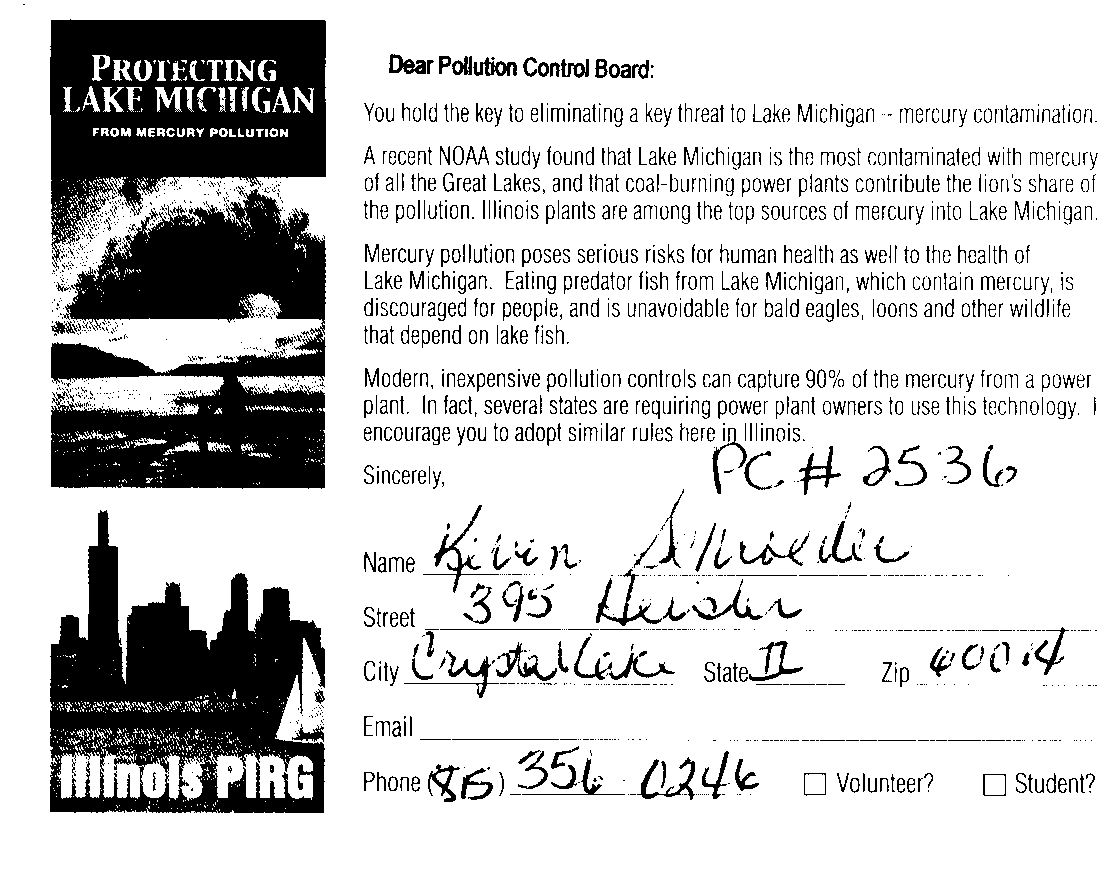 PROTECTING
LAKE MICHIGAN
FROM MERCURY POLLUTION
Illinois PIRG
Dear Pollution Control Board:
You hold the key to eliminating a key threat to Lake Michigan -- mercury contamination.
A recent NOAA study found that Lake Michigan is the most contaminated with mercury
of all the Great Lakes, and that coal-burning power plants contribute the lion's share of
the pollution. Illinois plants are among the top sources of mercury into Lake Michigan.
Mercury pollution poses serious risks for human health as well to the health of
Lake Michigan. Eating predator fish from Lake Michigan, which contain mercury, is
discouraged for people, and is unavoidable for bald eagles, loons and other wildlife
that depend on lake fish.
Modern, inexpensive pollution controls can capture 90% of the mercury from a power
plant. In fact, several states are requiring power plant owners to use this technology. I
encourage you to adopt similar rules here in Illinois.
Sincerely,
PC # 2536
Name Kevin Schroeder
Street 395
City Crystal Lake State IL Zip 60014
Email
Phone (815) 356 0246 Volunteer? Student?